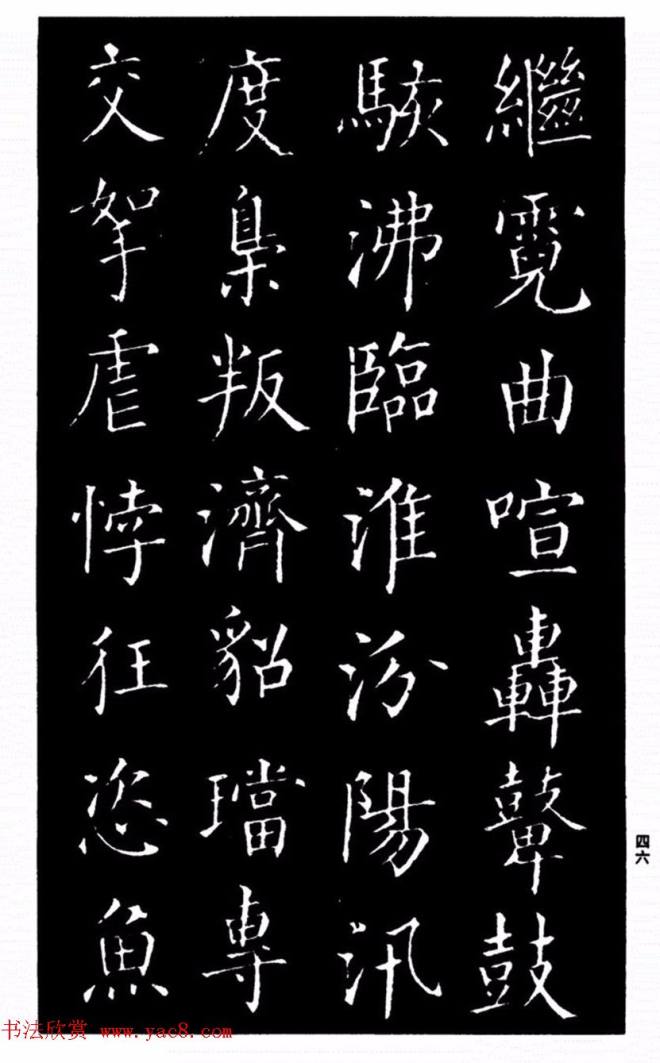 繼霓曲喧轟鼙鼓
駭沸臨淮汾陽汛
度梟叛濟貂璫專
交挐虐悖狂恣魚
四六
书法欣赏 www.yac8.com